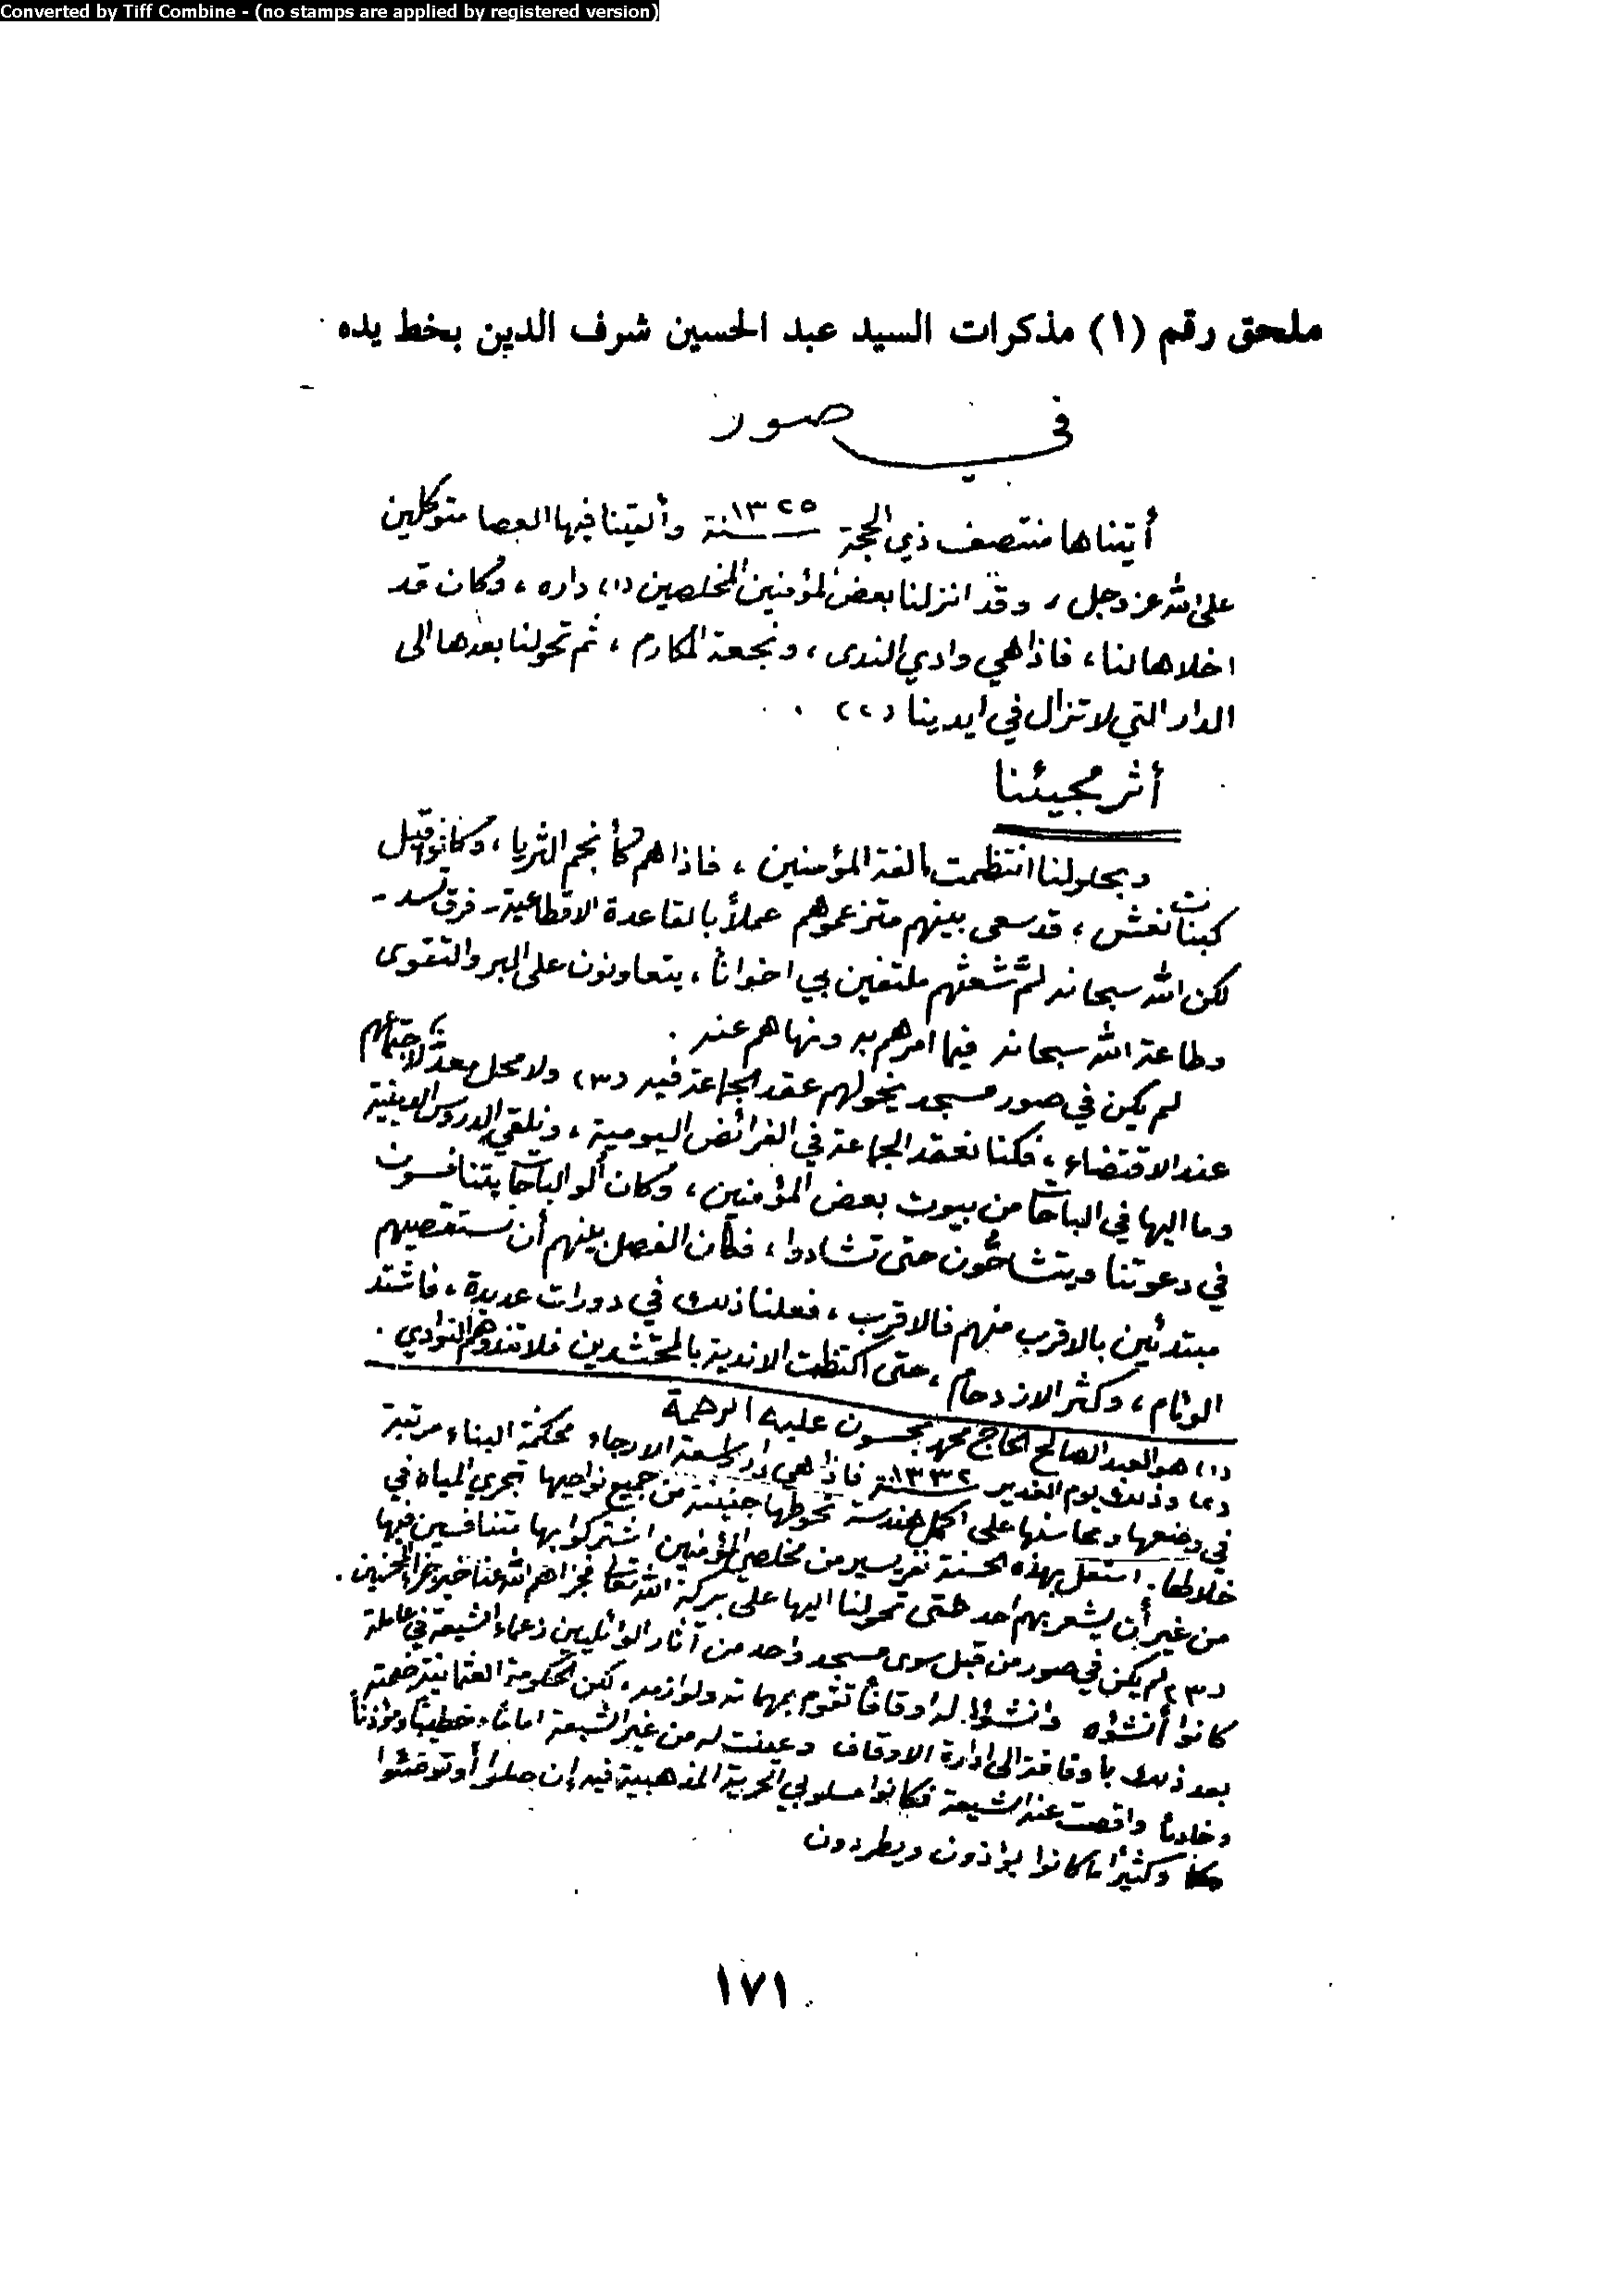 Converted by Tiff Combine - (no stamps are applied by registered version)
ملحق رقم (١) مذكرات السيد عبد الحسين شرف الدين بخط يده
في صور
أتيناها منتصف ذي الحجة سنة ١٣٢٥ وألقينا فيها العصا متوكلين
على الله عز وجل، وقد انزلنا بعض المؤمنين المخلصين (١) داره، وكان قد
اخلاها لنا، فاذا هي وادي الندى، ونجعة المكارم، ثم تحولنا بعدها الى
الدار التي لا تزال في ايدينا (٢) .
أثر مجيئنا
وبحلولنا انتظمت الفة المؤمنين، فاذا هم كأنجم الثريا، وكانوا قبل
كبنات نعش، قد سعى بينهم متزعموهم عملاً بالقاعدة الاقطاعية - فرق تسد -
لكن الله سبحانه لمَّ شعثهم ملتفين بي اخواناً، يتعاونون على البر والتقوى
وطاعة الله سبحانه فيما امرهم به ونهاهم عنه .
لم يكن في صور مسجد يخولهم عقد الجماعة فيه (٣) ولا محل معدّ لاجتماعهم
عند الاقتضاء، فكنا نعقد الجماعة في الفرائض اليومية، ونلقي الدروس الدينية
وما اليها في الباحات من بيوت بعض المؤمنين، وكان ألو الباحات يتنافسون
في دعوتنا ويتشاحّون حتى تشادوا، فكان الفصل بينهم أن نستقصيهم
مبتدئين بالاقرب منهم فالاقرب، فعلنا ذلك في دورات عديدة، فاشتد
الوئام، وكثر الازدحام، حتى اكتظت الاندية بالمحتشدين فلا تندوهم النوادي .
(١) هو العبد الصالح الحاج محمد بحسون عليه الرحمة
(٢) وذلك يوم الغدير سنة ١٣٣٢ فاذا هي دار واسعة الارجاء محكمة البناء مرتبة
في وضعها ومحاسنها على اكمل هندسة تحوطها جنينة من جميع نواحيها تجري المياه في
خلالها. استقل بهذه الحسنة نفر يسير من مخلصي المؤمنين اشتركوا بها متنافسين فيها
من غير أن يشعر بهم احد حتى تحولنا اليها على بركة الله تعالى فجزاهم الله عنا خير جزاء المحسنين .
(٣) لم يكن في صور من قبل سوى مسجد واحد من آثار الوائليين زعماء الشيعة في عاملة
كانوا أنشؤه وانشؤا له اوقافاً تقوم بمهماته ولوازمه، لكن الحكومة العثمانية ضمته
بعد ذلك باوقافه الى ادارة الاوقاف وعينت له من غير الشيعة اماماً وخطيباً ومؤذناً
وخادماً واقصت عنه الشيعة فكانوا مسلوبي الحرية المذهبية فيه إن صلوا أو توضئوا
وكثيراً ما كانوا يؤذون ويطردون
١٧١